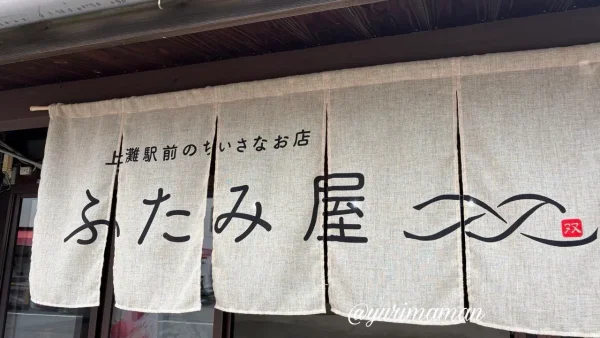 上灘駅前のちいさなお店
ふたみ屋
双
@yurimaman